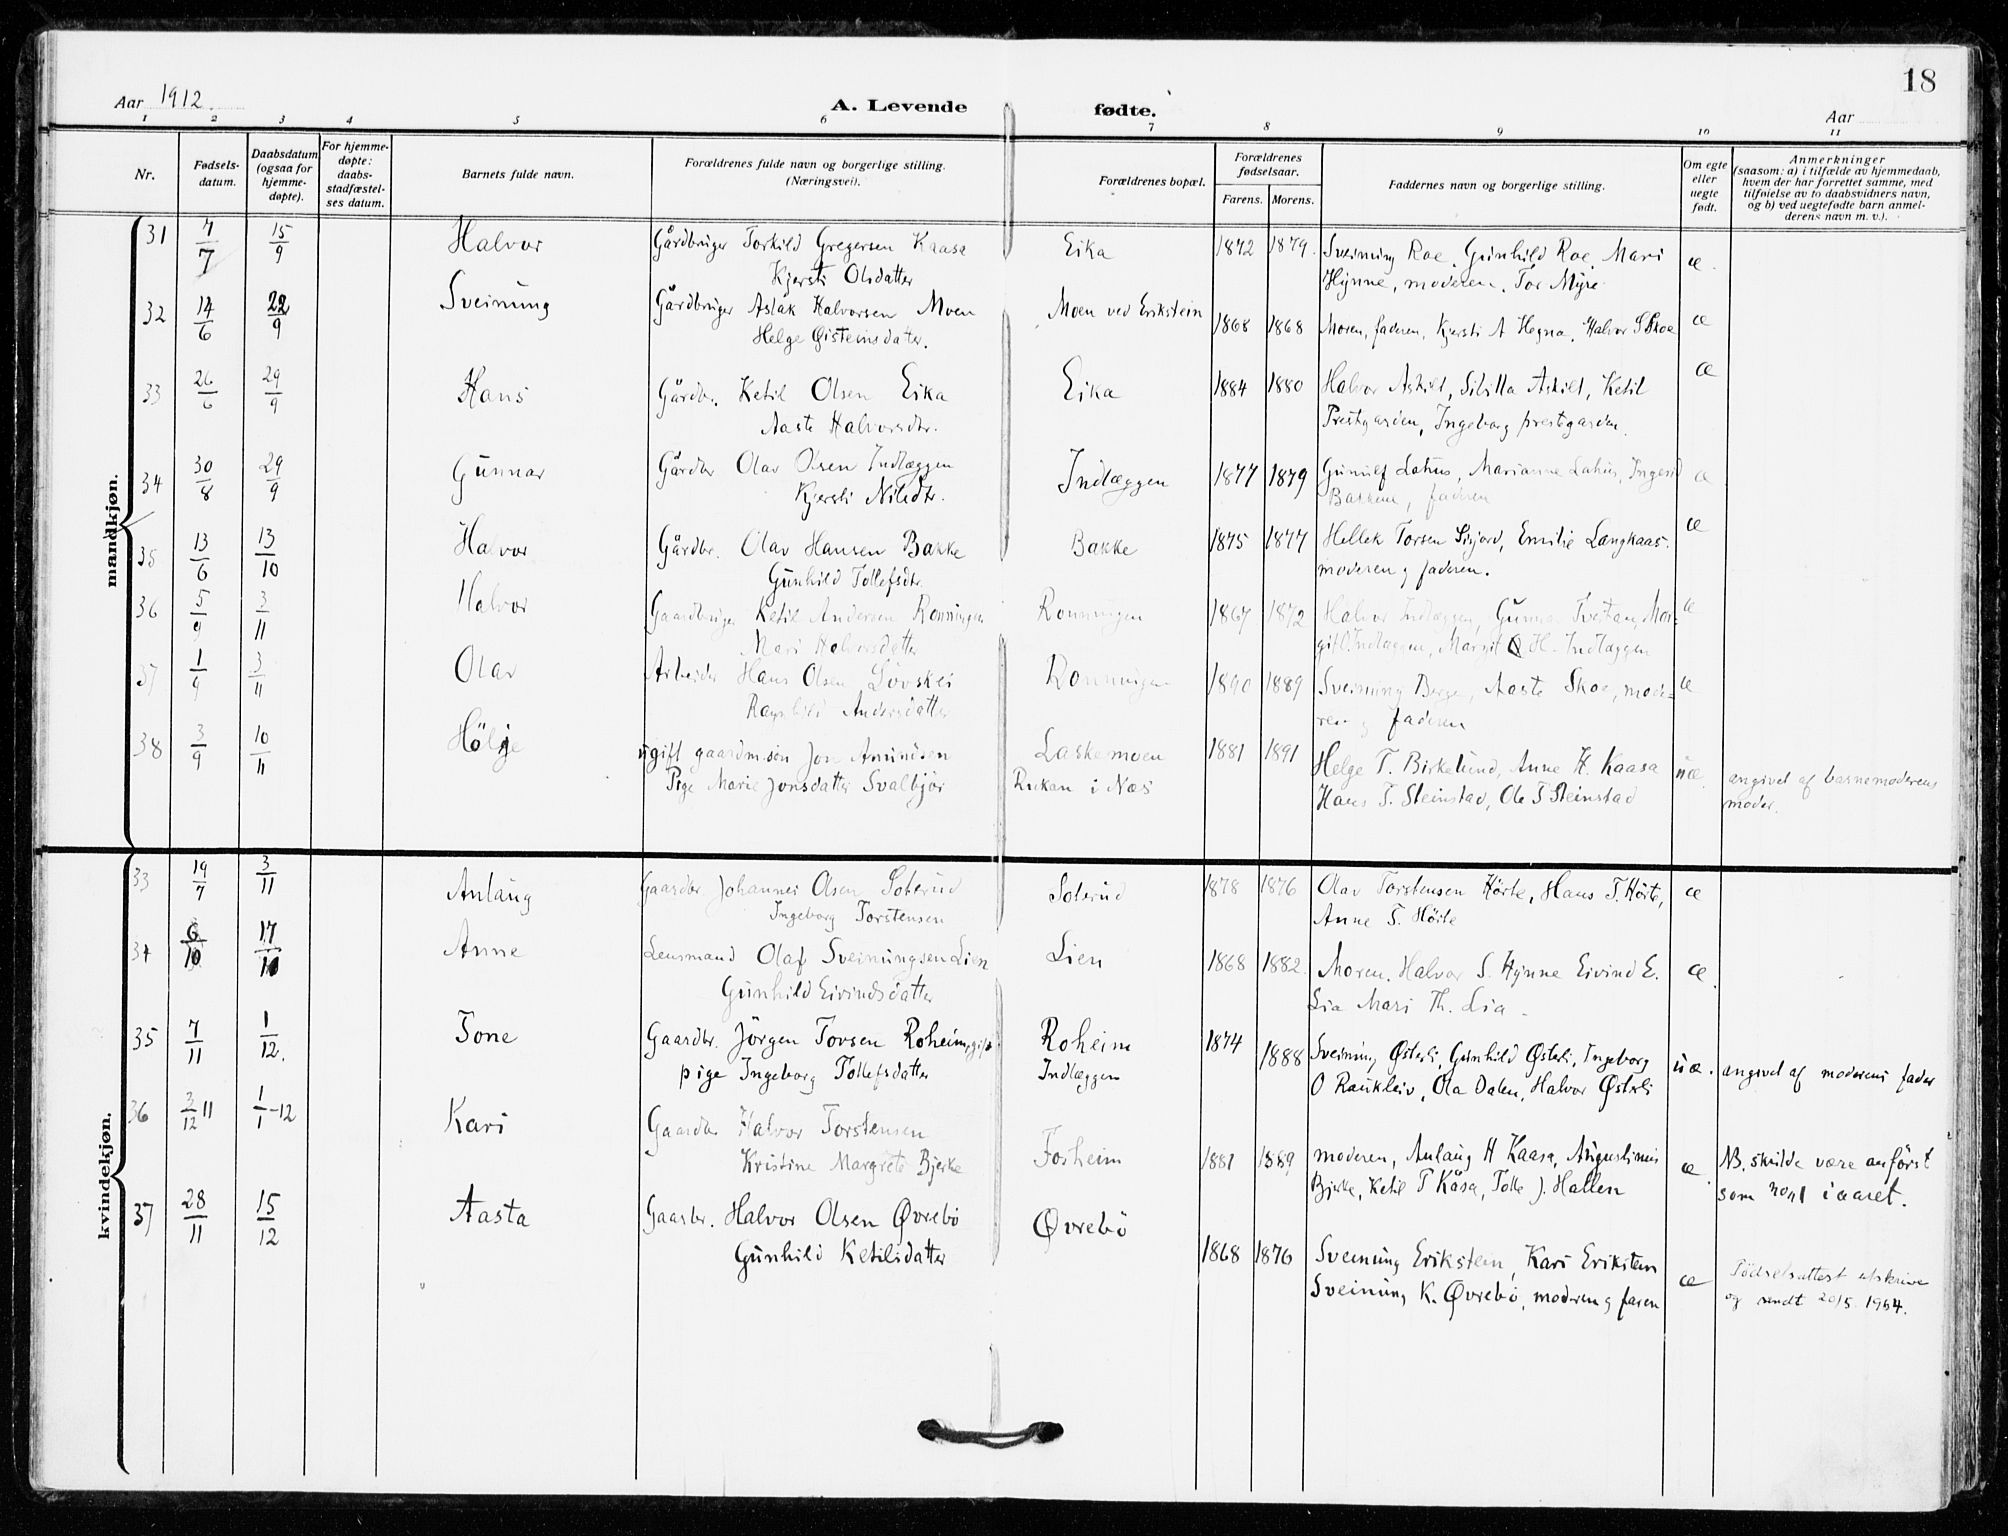 18
Aar 1912. A. Levende fødte. Aar
1 2 3 4 5 6 7 8 9 10 11
Nr. Fødsels-datum. Daabsdatum (ogsaa for hjemme-døpte). For hjemme-døpte: daabs-stadfæstel-ses datum. Barnets fulde navn. Forældrenes fulde navn og borgerlige stilling. (Næringsvei). Forældrenes bopæl. Forældrenes fødselsaar. Farens. Morens. Faddernes navn og borgerlige stilling. Om egte eller uegte født. Anmerkninger (saasom: a) i tilfælde av hjemmedaab, hvem der har forrettet samme, med tilføielse av to daabsvidners navn, og b) ved uegtefødte barn anmel-derens navn m. v.).
mandkjøn.
31 7/7 15/9 Halvor Gårdbruger Torkild Gregersen Kaasa Eika 1872 1879. Sveinung Roe, Gunhild Roe, Mari æ.
Kjersti Olsdatter Hynne, moderen, Tor Myre
32 14/6 22/9 Sveinung Gårdbruger Aslak Halvorsen Moen Moen ved Erikstein 1868 1868 Moren, faderen, Kjersti A Hegna, Halvor S Skoe æ
Helge Øisteinsdatter.
33 26/6 29/9 Hans Gårdbr. Ketil Olsen Eika Eika 1884 1880 Halvor Askilt, Sibilla Askilt, Ketil æ
Aaste Halvorsdtr. Prestgarden, Ingeborg prestegarden.
34 30/8 29/9 Gunnar Gårdbr Olav Olsen Indlæggen Indlæggen 1877 1879 Gunulf Lahus, Marianne Lahus, Ingerid æ
Kjersti Nilsdtr. Bakken, faderen
35 13/6 13/10 Halvor Gårdbr. Olav Hansen Bakke Bakke 1875 1877 Hellek Torsen, Emilie Langkaas. æ
Gunhild Tollefsdtr. moderen g faderen.
36 5/9 3/11 Halvor Gaardbruger Ketil Andersen Ronningen Ronningen 1867 1872 Halvor Indlæggen, Gunnar Tveitan, Mar- æ
Mari Halvorsdatter git Indlæggen, Margit H. Indlæggen
37 1/9 3/11 Olav Arbeider Hans Olsen Ronningen 1890 1889 Sveinung Berge, Aaste Skoe, mode- æ
Ragnhild Andersdatter ren g faderen
38 3/9 10/11 Hölje ugift gaardm.søn Jon Amundsen Laskemoen 1881 1891 Helge T. Birkelund, Anne H. Kaasa uæ. angivet af barnemoderens
Pige Marie Jonsdatter Svalbjør Rukan i Næs Hans T. Steinstad, Ole T Steinstad moder.
kvindekjøn.
33 19/7 3/11 Anlaug Gaardbr. Johannes Olsen Soterud Soterud 1878 1876 Olav Torstensen Hörte, Hans T. Hörte, æ
Ingeborg Torstensen Anne T. Hörte
34 6/10 17/10 Anne Lensmand Olaf Sveinungsen Lien Lien 1868 1882 Moren. Halvor S. Hynne Eivind E. æ.
Gunhild Eivindsdatter Lia Mari Th. Lia
35 7/11 1/12. Tone Gaardbr. Jörgen Tovsen Roheim, gift Roheim 1874 1888 Sveinung Østerli, Gunhild Østerli, Ingeborg uæ. angivet af moderens fader
pige Ingeborg Tollefsdatter Indlæggen O Raukleiv, Ola Dalen, Halvor Østerli
36 3/12 11 1/1-12 Kari Gaardbr Halvor Torstensen Forheim 1881 1889 moderen, Anlaug H Kaasa, Augustinus æ NB. skulde være anført
Kristine Margrete Bjerke Bjerke, Ketil T Kåsa, Tolle J. Hallen som no 1 i aaret.
37 28/11 15/12 Aasta Gaarbr. Halvor Olsen Øvrebö Øvrebö 1868 1876 Sveinung Erikstein, Kari Erikstein æ Födselsattest utskrive
Gunhild Ketilsdatter Sveinung K. Øvrebö, moderen g faren og sendt 20/5. 1964.